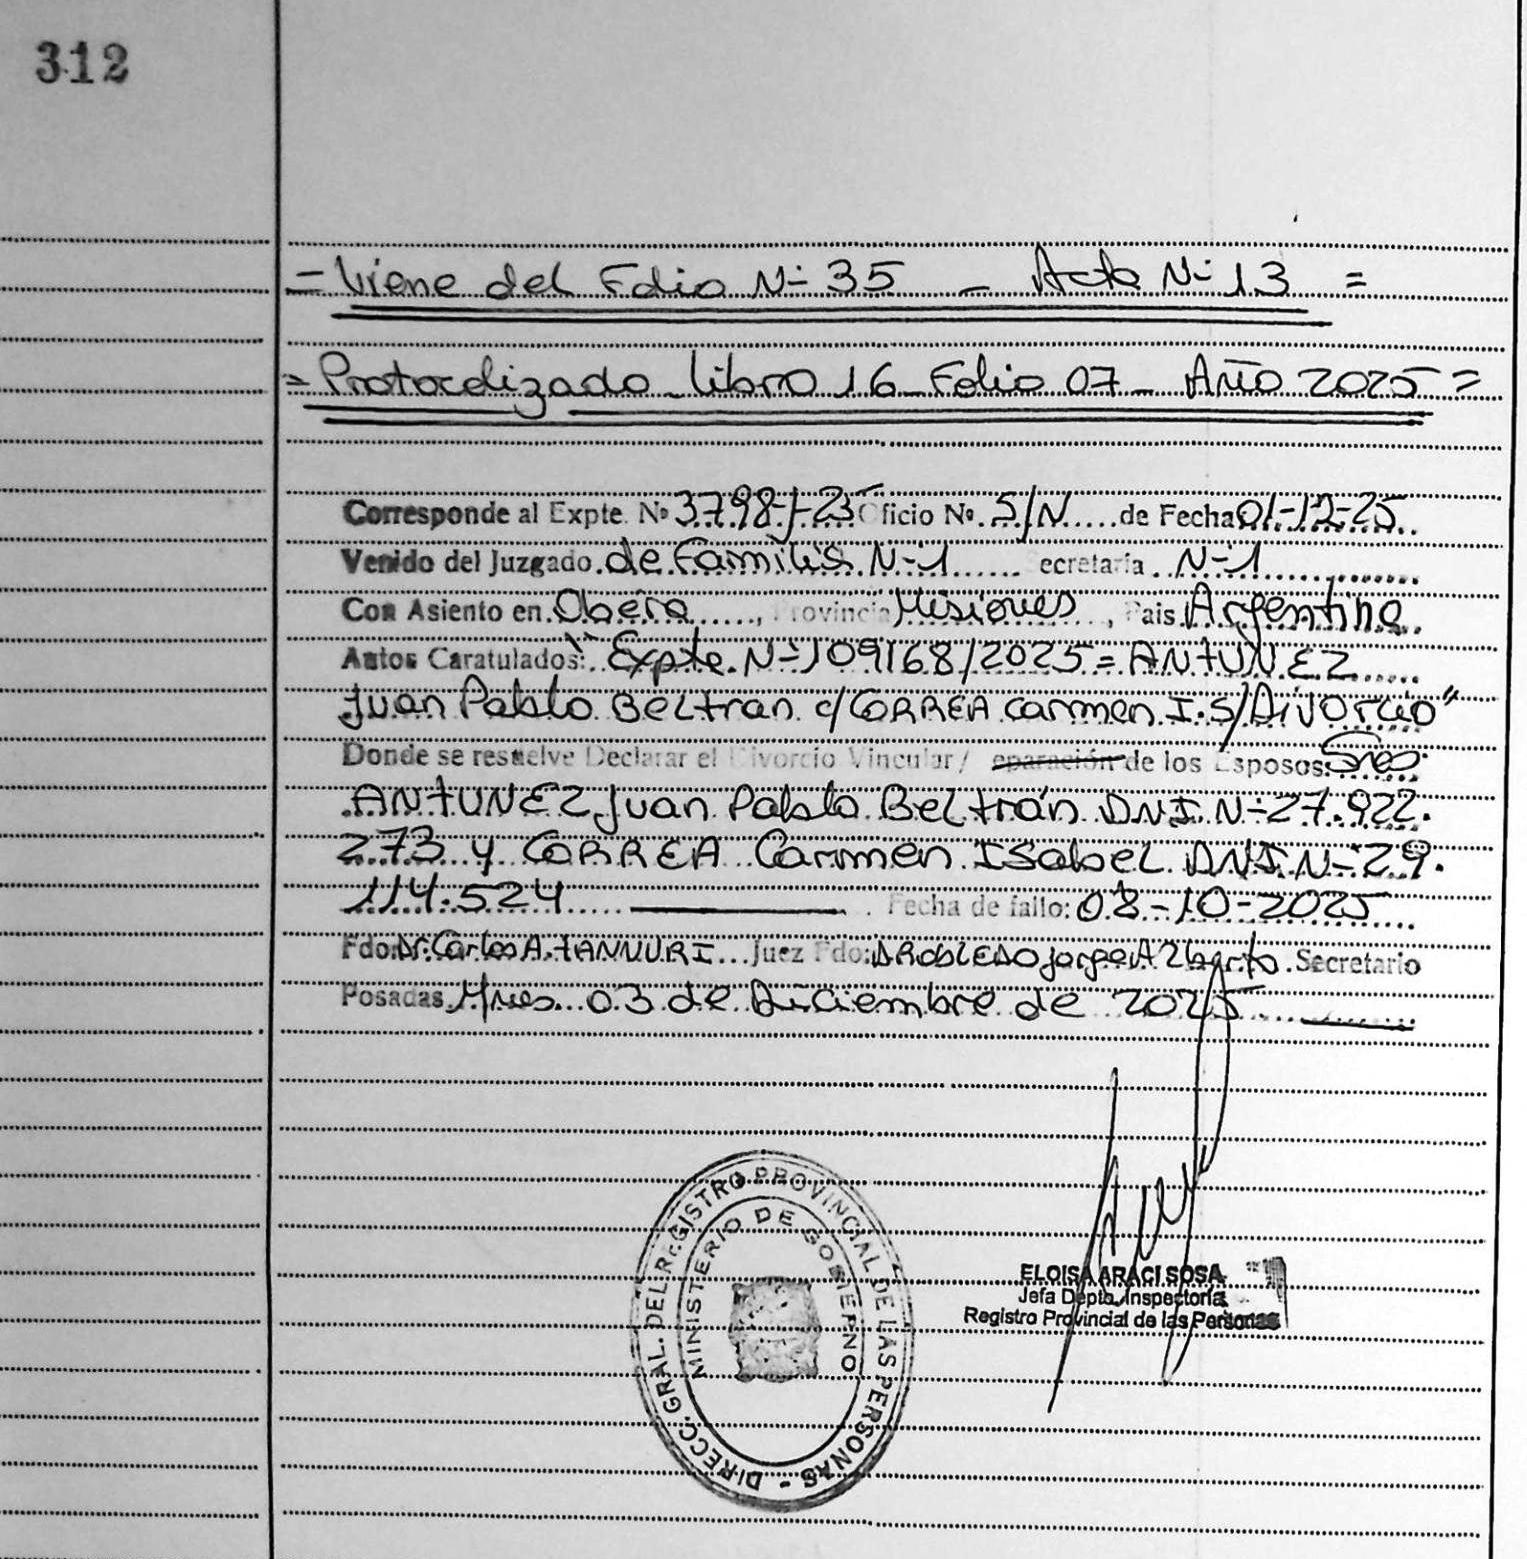 312
= Viene del Folio N- 35 - Acta N- 13 =
= Protocolizado - Libro 16 - Folio 07 - Año 2025 =
Corresponde al Expte. Nº 3798-J-25 Oficio Nº. S/N.... de Fecha 01-12-25
Venido del Juzgado. de Familia N-1...... ecretaria.. N-1
Con Asiento en. Oberá......, Provincia Misiones, Pais Argentina
Autos Caratulados: "Expte. N-109168/2025 = ANTUNEZ
Juan Pablo Beltran c/CORREA Carmen I. S/Divorcio"
Donde se resuelve Declarar el Divorcio Vincular/ eparación de los Esposos: Sres
ANTUNEZ Juan Pablo Beltrán DNI. N-27.922.
273 y CORREA Carmen Isabel DNI. N-29.
114.524 ...... Fecha de fallo: 08-10-2025
Fdo: Dr. Carlos A. TANNURI... Juez Fdo: D ROBLEDO Jorge Alberto. Secretario
Posadas, Mnes... 03 de Diciembre de 2025
DIRECC. GRAL. DEL REGISTRO PROVINCIAL DE LAS PERSONAS -
MINISTERIO DE GOBIERNO
ELOISA ARACI SOSA
Jefa Depto. Inspectoría
Registro Provincial de las Personas